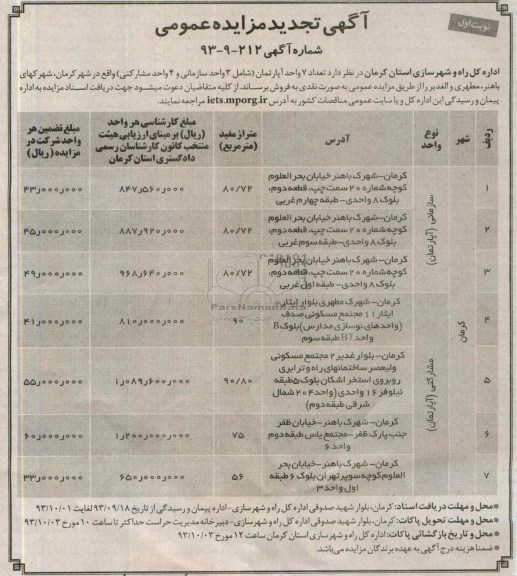 نوبت اول
آگهی تجدید مزایده عمومی
شماره آگهی ۲۱۲-۹-۹۳
اداره کل راه و شهرسازی استان کرمان در نظر دارد تعداد ۷ واحد آپارتمان (شامل ۳ واحد سازمانی و ۴ واحد مشارکتی) واقع در شهر کرمان، شهرکهای
باهنر، مطهری و الغدیر را از طریق مزایده عمومی به صورت نقدی به فروش برساند. از کلیه متقاضیان دعوت میشود جهت دریافت اسناد مزایده به اداره
پیمان و رسیدگی این اداره کل و یا سایت عمومی مناقصات کشور به آدرس iets.mporg.ir مراجعه نمایند.
ردیف شهر نوع واحد آدرس متراژ مفید (مترمربع) مبلغ کارشناسی هر واحد (ریال) بر مبنای ارزیابی هیئت منتخب کانون کارشناسان رسمی دادگستری استان کرمان مبلغ تضمین هر واحد شرکت در مزایده (ریال)
کرمان
سازمانی (آپارتمان)
۱ کرمان- شهرک باهنر خیابان بحرالعلوم
کوچه شماره ۲۰ سمت چپ، قطعه دوم،
بلوک ۸ واحدی- طبقه چهارم غربی
۸۰/۷۲ ۸۴۷ر۵۶۰ر۰۰۰ ۴۳ر۰۰۰ر۰۰۰
۲ کرمان- شهرک باهنر خیابان بحرالعلوم
کوچه شماره ۲۰ سمت چپ، قطعه دوم،
بلوک ۸ واحدی- طبقه سوم غربی
۸۰/۷۲ ۸۸۷ر۹۲۰ر۰۰۰ ۴۵ر۰۰۰ر۰۰۰
۳ کرمان- شهرک باهنر خیابان بحرالعلوم
کوچه شماره ۲۰ سمت چپ، قطعه دوم،
بلوک ۸ واحدی- طبقه اول غربی
۸۰/۷۲ ۹۶۸ر۶۴۰ر۰۰۰ ۴۹ر۰۰۰ر۰۰۰
مشارکتی (آپارتمان)
۴ کرمان- شهرک مطهری بلوار ایثار-
ایثار ۱۱ مجتمع مسکونی صدف
(واحدهای نوسازی مدارس) بلوک B
واحد B7 طبقه سوم
۹۰ ۸۱۰ر۰۰۰ر۰۰۰ ۴۱ر۰۰۰ر۰۰۰
۵ کرمان- بلوار غدیر ۲ مجتمع مسکونی
ولیعصر ساختمانهای راه و ترابری
روبروی استخر اشکان بلوک ۵ طبقه
نیلوفر ۱۶ واحدی (واحد ۲۰۴ شمال
شرقی طبقه دوم)
۹۰/۸۰ ۱ر۰۸۹ر۶۰۰ر۰۰۰ ۵۵ر۰۰۰ر۰۰۰
۶ کرمان- شهرک باهنر- خیابان ظفر
جنب پارک ظفر- مجتمع یاس طبقه دوم
واحد ۶
۷۵ ۱ر۲۰۰ر۰۰۰ر۰۰۰ ۶۰ر۰۰۰ر۰۰۰
۷ کرمان- شهرک باهنر- خیابان بحر
العلوم کوچه سوپر تهران بلوک ۶ طبقه
اول واحد ۳
۵۶ ۶۵۰ر۰۰۰ر۰۰۰ ۳۳ر۰۰۰ر۰۰۰
ParsNamadData
* محل و مهلت دریافت اسناد: کرمان، بلوار شهید صدوقی اداره کل راه و شهرسازی- اداره پیمان و رسیدگی از تاریخ ۹۳/۰۹/۱۸ لغایت ۹۳/۱۰/۰۱
* محل و مهلت تحویل پاکات: کرمان، بلوار شهید صدوقی اداره کل راه و شهرسازی- دبیرخانه مدیریت حراست حداکثر تا ساعت ۱۰ مورخ ۹۳/۱۰/۰۳
* محل و تاریخ بازگشائی پاکات: اداره کل راه و شهرسازی استان کرمان ساعت ۱۲ مورخ ۹۳/۱۰/۰۳
* ضمنا هزینه درج آگهی به عهده برندگان مزایده می‌باشد.